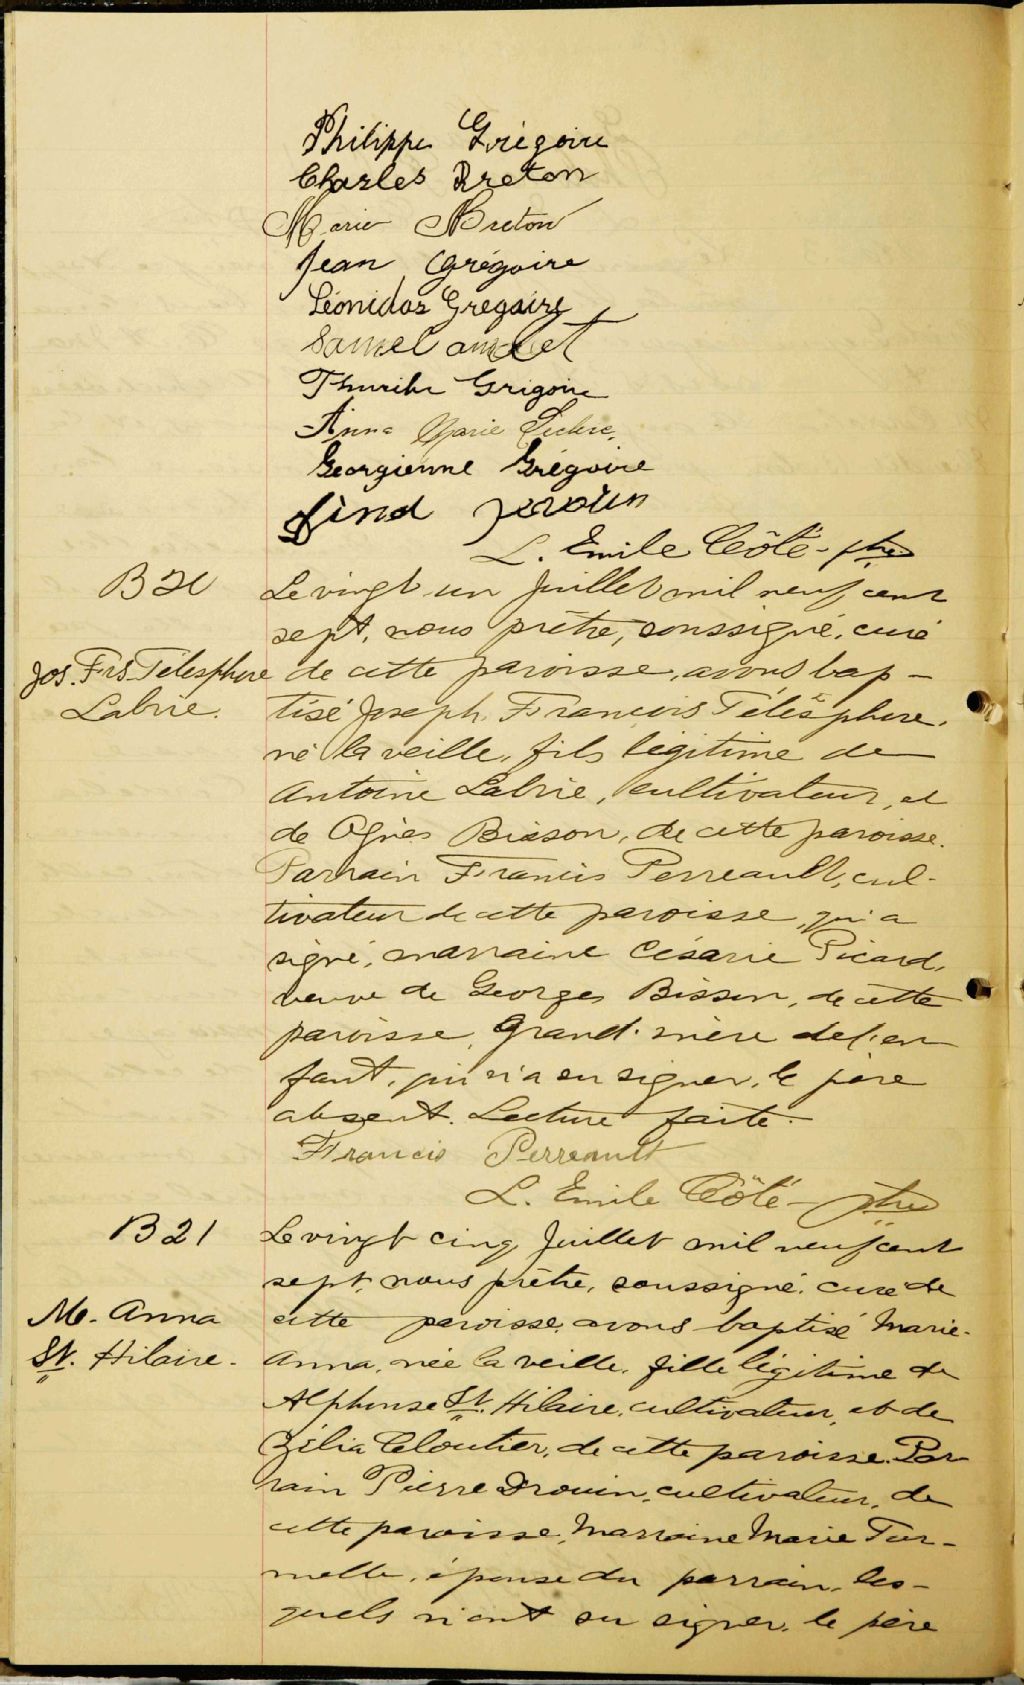 Philippe Grégoire
Charles Breton
Marie Breton
Jean Grégoire
Léonidas Grégoire
Samuel
Thuribe Grégoire
Anna Marie Leclerc
Georgienne Grégoire
L. Emile Côté - ptre
B 20
Le vingt un Juillet mil neuf cent
sept, nous prêtre, soussigné, curé
Jos. Frs. Télesphore
de cette paroisse, avons bap-
Labrie.
tisé Joseph François Télesphore,
né la veille, fils légitime de
Antoine Labrie, cultivateur, et
de Agnès Bisson, de cette paroisse.
Parrain Francis Perreault, cul-
tivateur de cette paroisse, qui a
signé, marraine Césarie Picard,
veuve de Georges Bisson, de cette
paroisse, grand'mère de l'en
fant, qui n'a su signer, le père
absent. Lecture faite.
Francis Perreault
L. Emile Côté - ptre
B 21
Le vingt cinq Juillet mil neuf cent
sept, nous prêtre, soussigné, curé de
M. Anna
cette paroisse, avons baptisé Marie-
St. Hilaire.
Anna, née la veille, fille légitime de
Alphonse St. Hilaire, cultivateur, et de
Zélia Cloutier, de cette paroisse. Par
rain Pierre Drouin, cultivateur, de
cette paroisse, Marraine Marie Tur-
melle, épouse du parrain, les-
quels n'ont su signer, le père